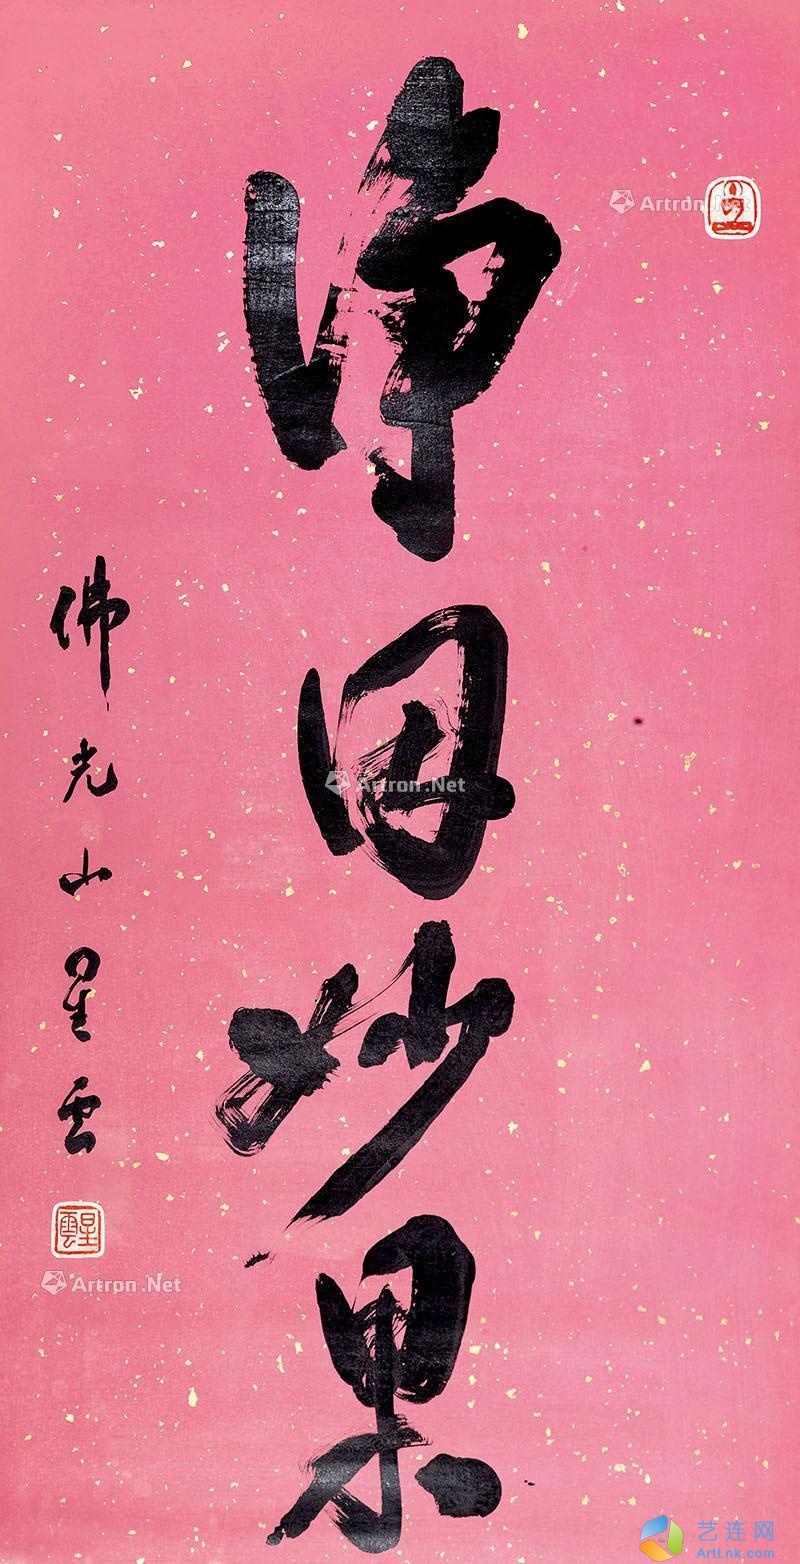 净因妙果
佛光山星雲
星雲
Artron.Net
Artron.Net
Artron.Net
Artron.Net
艺连网
ArtLnk.com